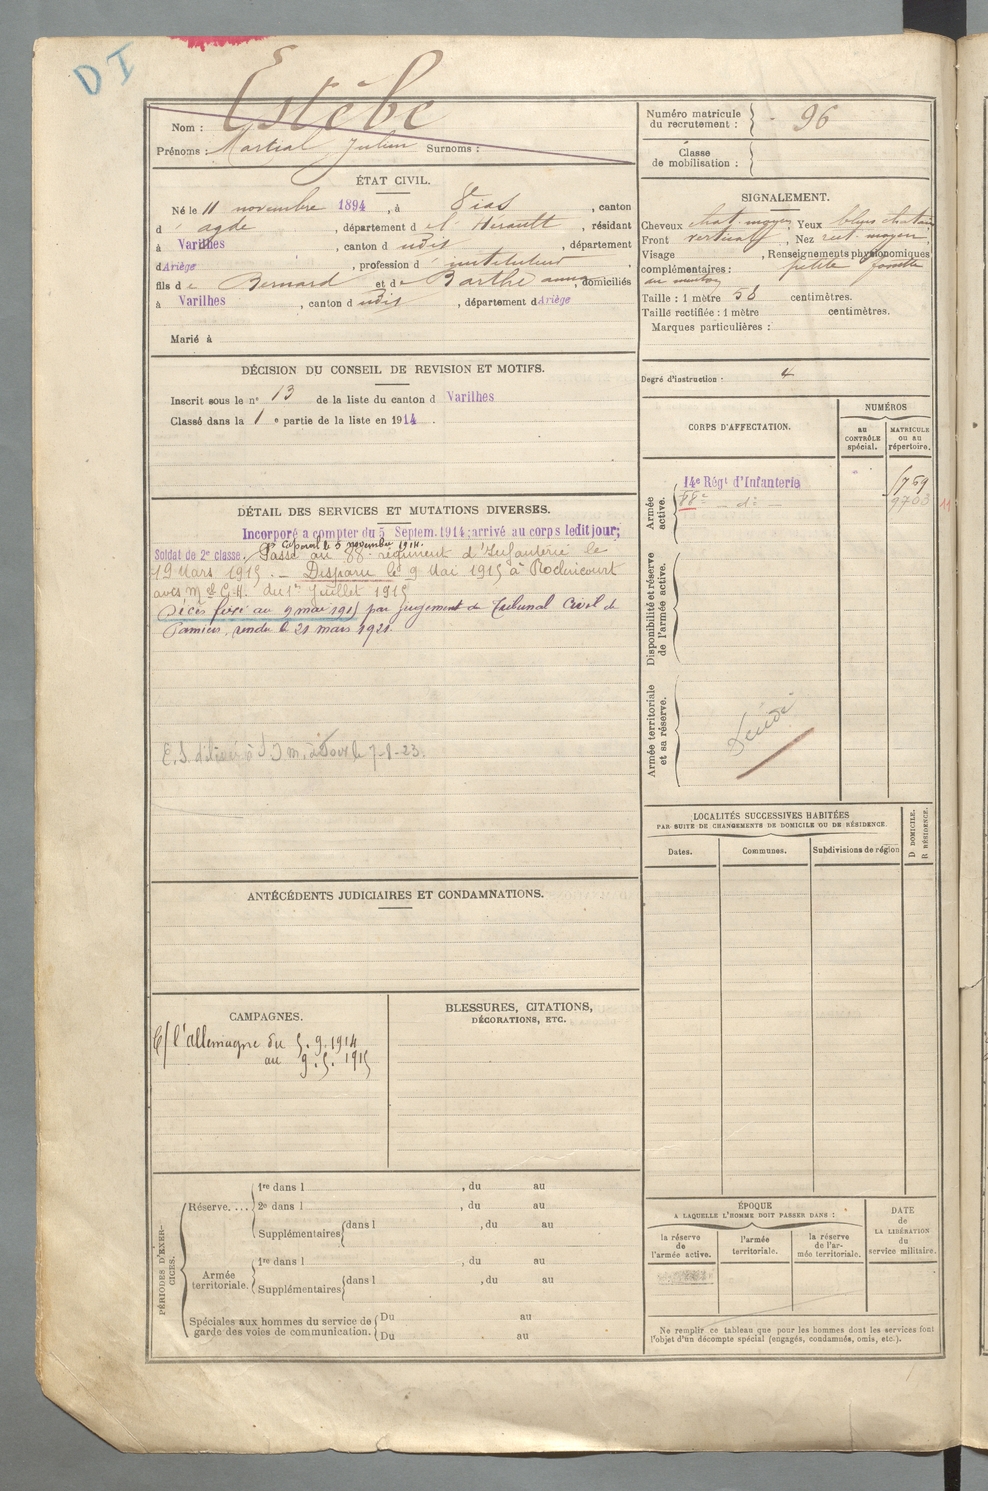 D I
Nom : Estèbe
Prénoms : Martial Julien Surnoms :
Numéro matricule
du recrutement : 96
Classe
de mobilisation :
ÉTAT CIVIL.
Né le 11 novembre 1894, à Vias, canton
d'agde, département de l'Hérault, résidant
à Varilhes, canton d udis, département
d Ariège, profession d'instituteur
fils de Bernard et de Barthe anna, domiciliés
à Varilhes, canton d udis, département d Ariège
Marié à
SIGNALEMENT.
Cheveux chat. moyen, Yeux bleus chatain
Front vertical, Nez rect. moyen,
Visage , Renseignements physionomiques
complémentaires : petite fossette
au menton
Taille : 1 mètre 58 centimètres.
Taille rectifiée : 1 mètre centimètres.
Marques particulières :
Degré d'instruction : 4
DÉCISION DU CONSEIL DE REVISION ET MOTIFS.
Inscrit sous le n° 13 de la liste du canton d Varilhes
Classé dans la 1e partie de la liste en 1914.
DÉTAIL DES SERVICES ET MUTATIONS DIVERSES.
Incorporé a compter du 5 Septem. 1914; arrivé au corps ledit jour;
Caporal le 5 novembre 1914.
Soldat de 2e classe. Passé au 88e régiment d'Infanterie le
19 Mars 1915. — Disparu le 9 Mai 1915 à Roclincourt
avis M.el G.H. du 1er Juillet 1915
Décès fixé au 9 mai 1915 par jugement du Tribunal Civil de
Pamiers, rendu le 21 mars 1921.
le 7-8-23.
CORPS D'AFFECTATION.
NUMÉROS
au
CONTRÔLE
spécial.
MATRICULE
ou au
répertoire.
Armée
active.
14e Régt d'Infanterie
88e — do —
9703
11
Disponibilité et réserve
de l'armée active.
Armée territoriale
et sa réserve.
LOCALITÉS SUCCESSIVES HABITÉES
PAR SUITE DE CHANGEMENTS DE DOMICILE OU DE RÉSIDENCE.
Dates.
Communes.
Subdivisions de région
D DOMICILE.
R RÉSIDENCE.
ANTÉCÉDENTS JUDICIAIRES ET CONDAMNATIONS.
CAMPAGNES.
C/ l'allemagne du 5.9.1914
au 9.5.1915
BLESSURES, CITATIONS,
DÉCORATIONS, ETC.
PÉRIODES D'EXER-
CICES.
Réserve....
1re dans l , du au
2e dans l , du au
Supplémentaires dans l , du au
Armée
territoriale.
1re dans l , du au
Supplémentaires dans l , du au
Spéciales aux hommes du service de
garde des voies de communication.
Du au
Du au
ÉPOQUE
A LAQUELLE L'HOMME DOIT PASSER DANS :
la réserve
de
l'armée active.
l'armée
territoriale.
la réserve
de l'ar-
mée territoriale.
DATE
de
LA LIBÉRATION
du
service militaire.
Ne remplir ce tableau que pour les hommes dont les services font
l'objet d'un décompte spécial (engagés, condamnés, omis, etc.).